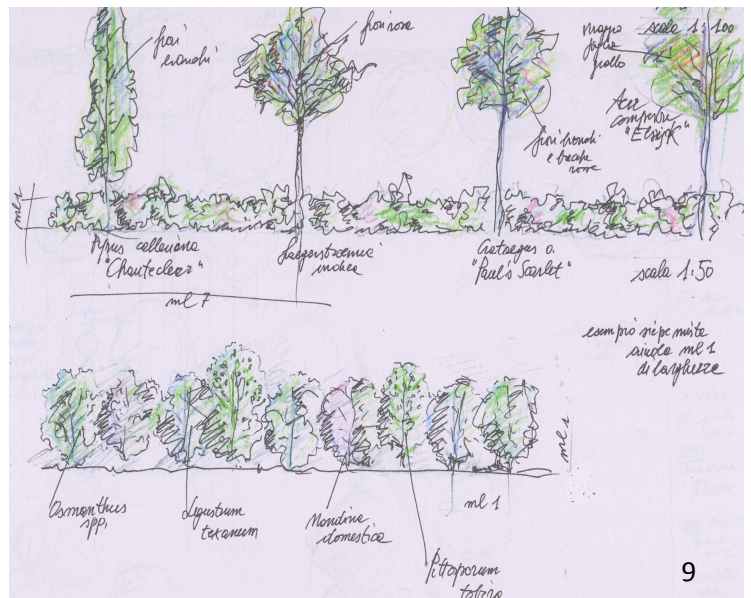 fiori
bianchi
fiori rosa
fiori bianchi
e bacche
rosse
foglia
giallo
scala 1:100
Acer
campestre
"Elsrijk"
ml 1
Pyrus calleriana
"Chantecleer"
Lagerstroemia
indica
Crataegus o.
"Paul's Scarlet"
scala 1:50
ml 7
esempio siepe mista
aiuola ml 1
di larghezza
ml 1
Osmanthus
spp.
Ligustrum
texanum
Nandina
domestica
ml 1
Pittosporum
tobira
9